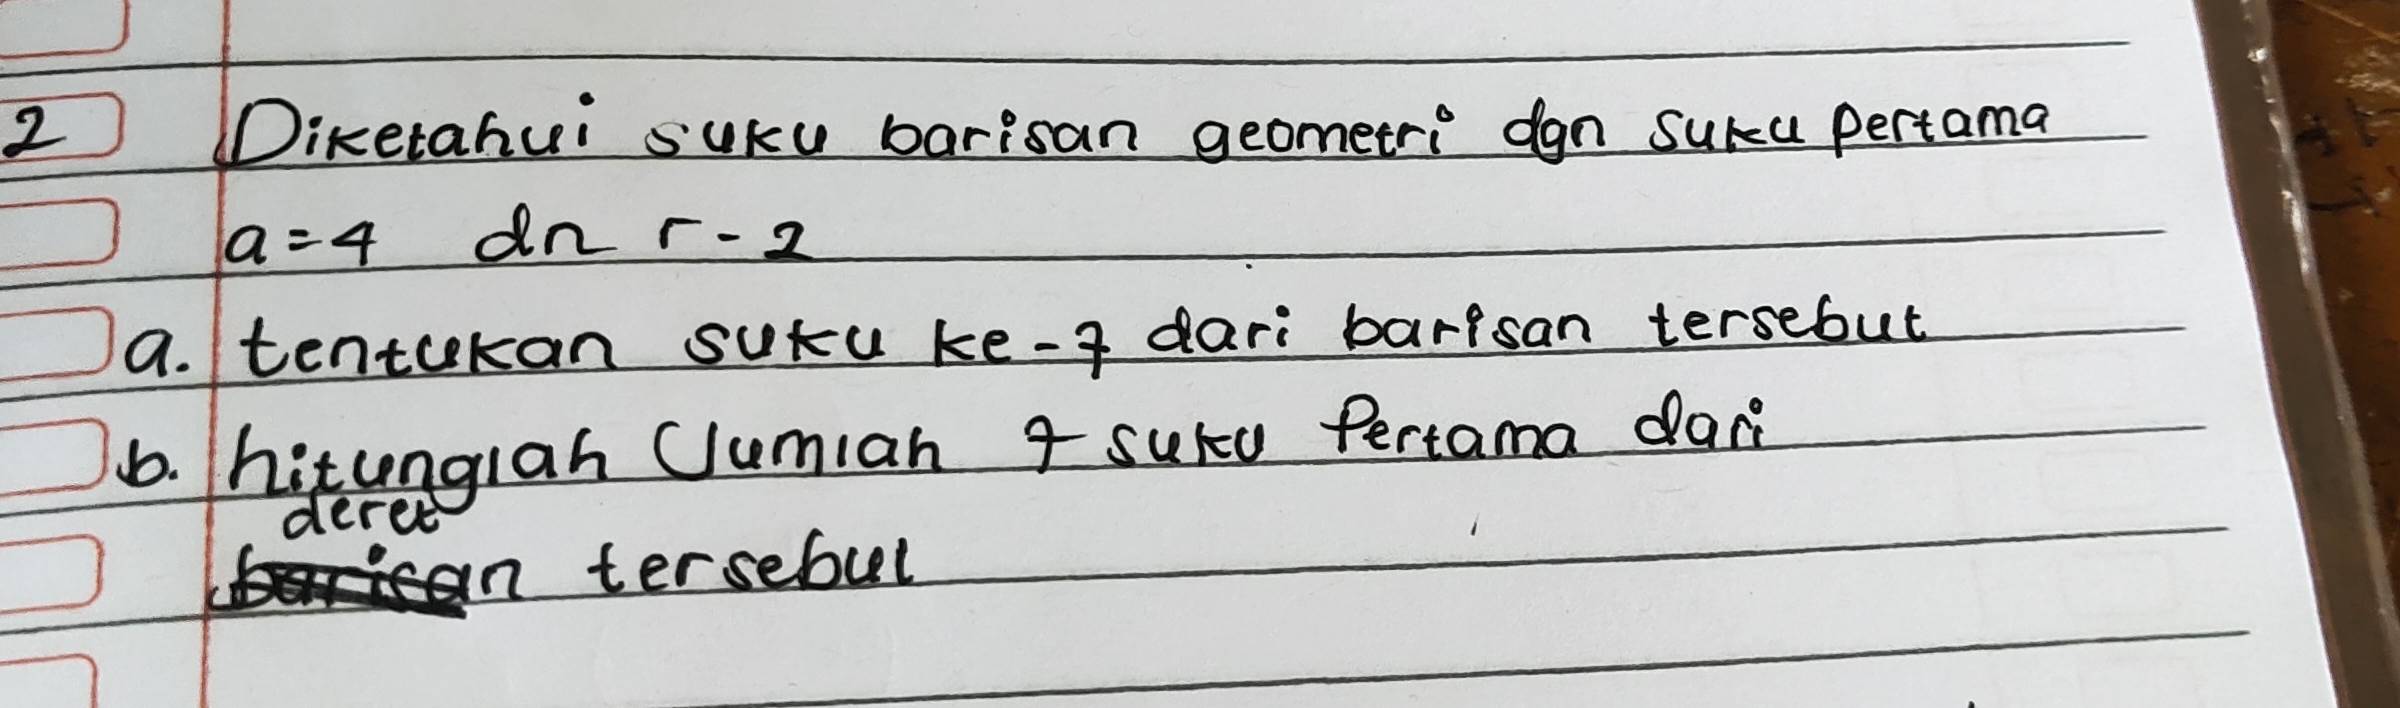 2 Diketahui suku barisan geometri dgn suku pertama
a = 4 dn r - 2
a. tentukan suku ke - 7 dari barisan tersebut
b. hitunglah Jumlah 7 suku Pertama dari
deret
barisan tersebut